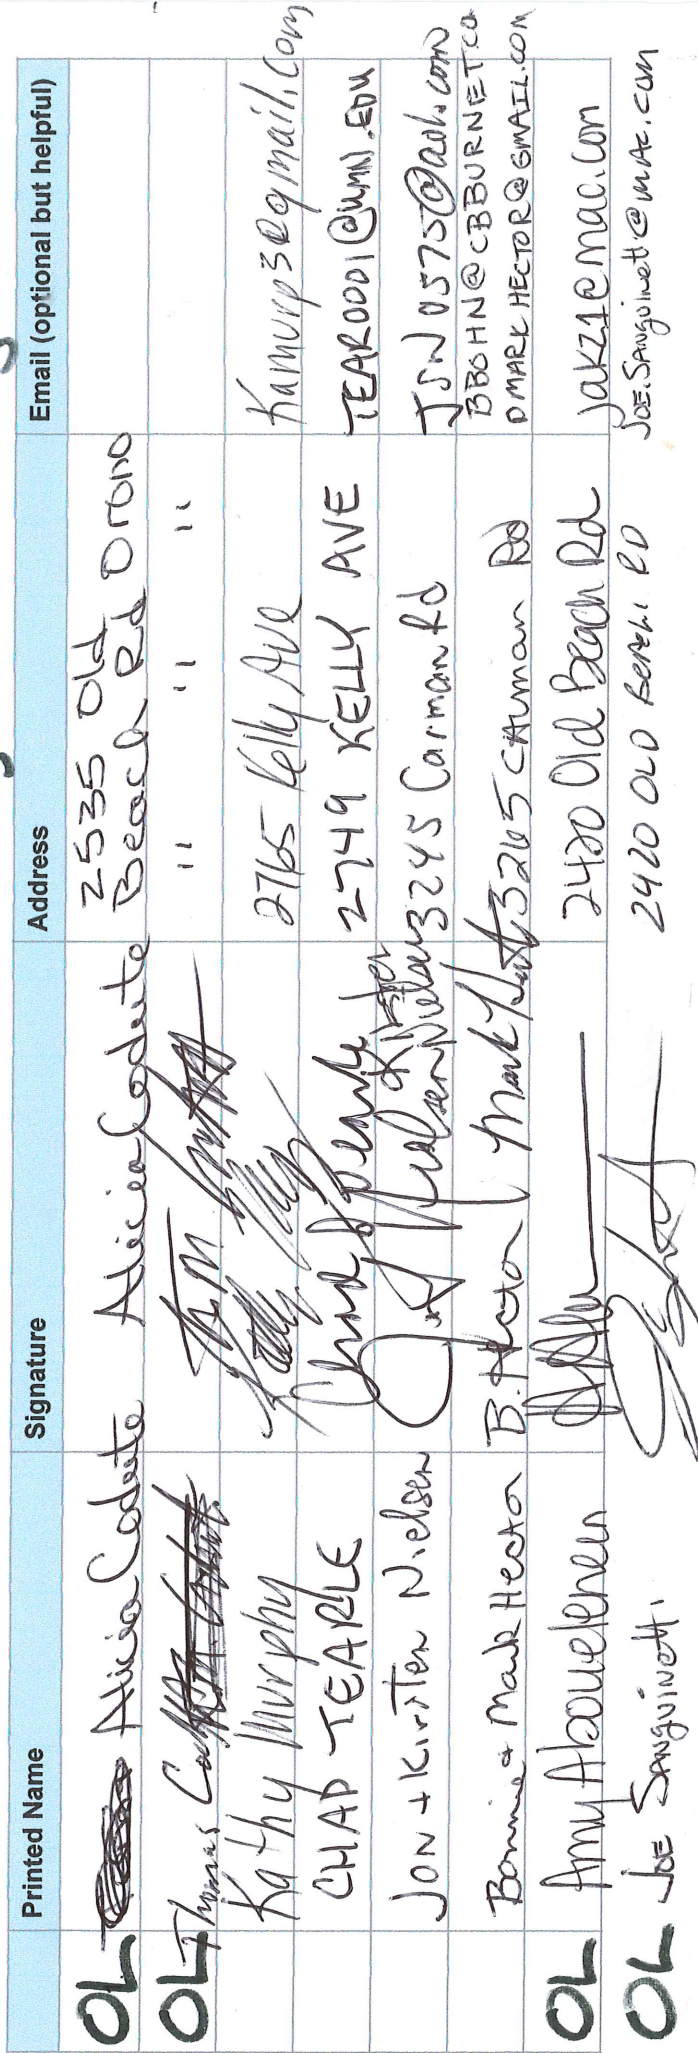 Printed Name Signature Address Email (optional but helpful)
OL Alicia Codute Alicia Codute 2535 Old
Beach Rd Orono
OL Thomas Tom " " "
Kathy Murphy 2765 Kelly Ave Kamurp3@gmail.com
CHAD TEARLE Chad Tearle 2749 KELLY AVE TEAR0001@UMN.EDU
JON + Kirsten Nielsen Nielsen 3245 Carman Rd JSN0575@aol.com
Bonnie + Mark Hector B. Hector / Mark 3265 CAUman Rd BBOHN@CBBURNET.CO
DMARKHECTOR@GMAIL.COM
OL Amy Abouelenein 2420 Old Beach Rd jakz1@mac.com
OL JOE SANGUINETTI 2420 OLD BEACH RD JOE.SANGUINETTI@MAC.COM